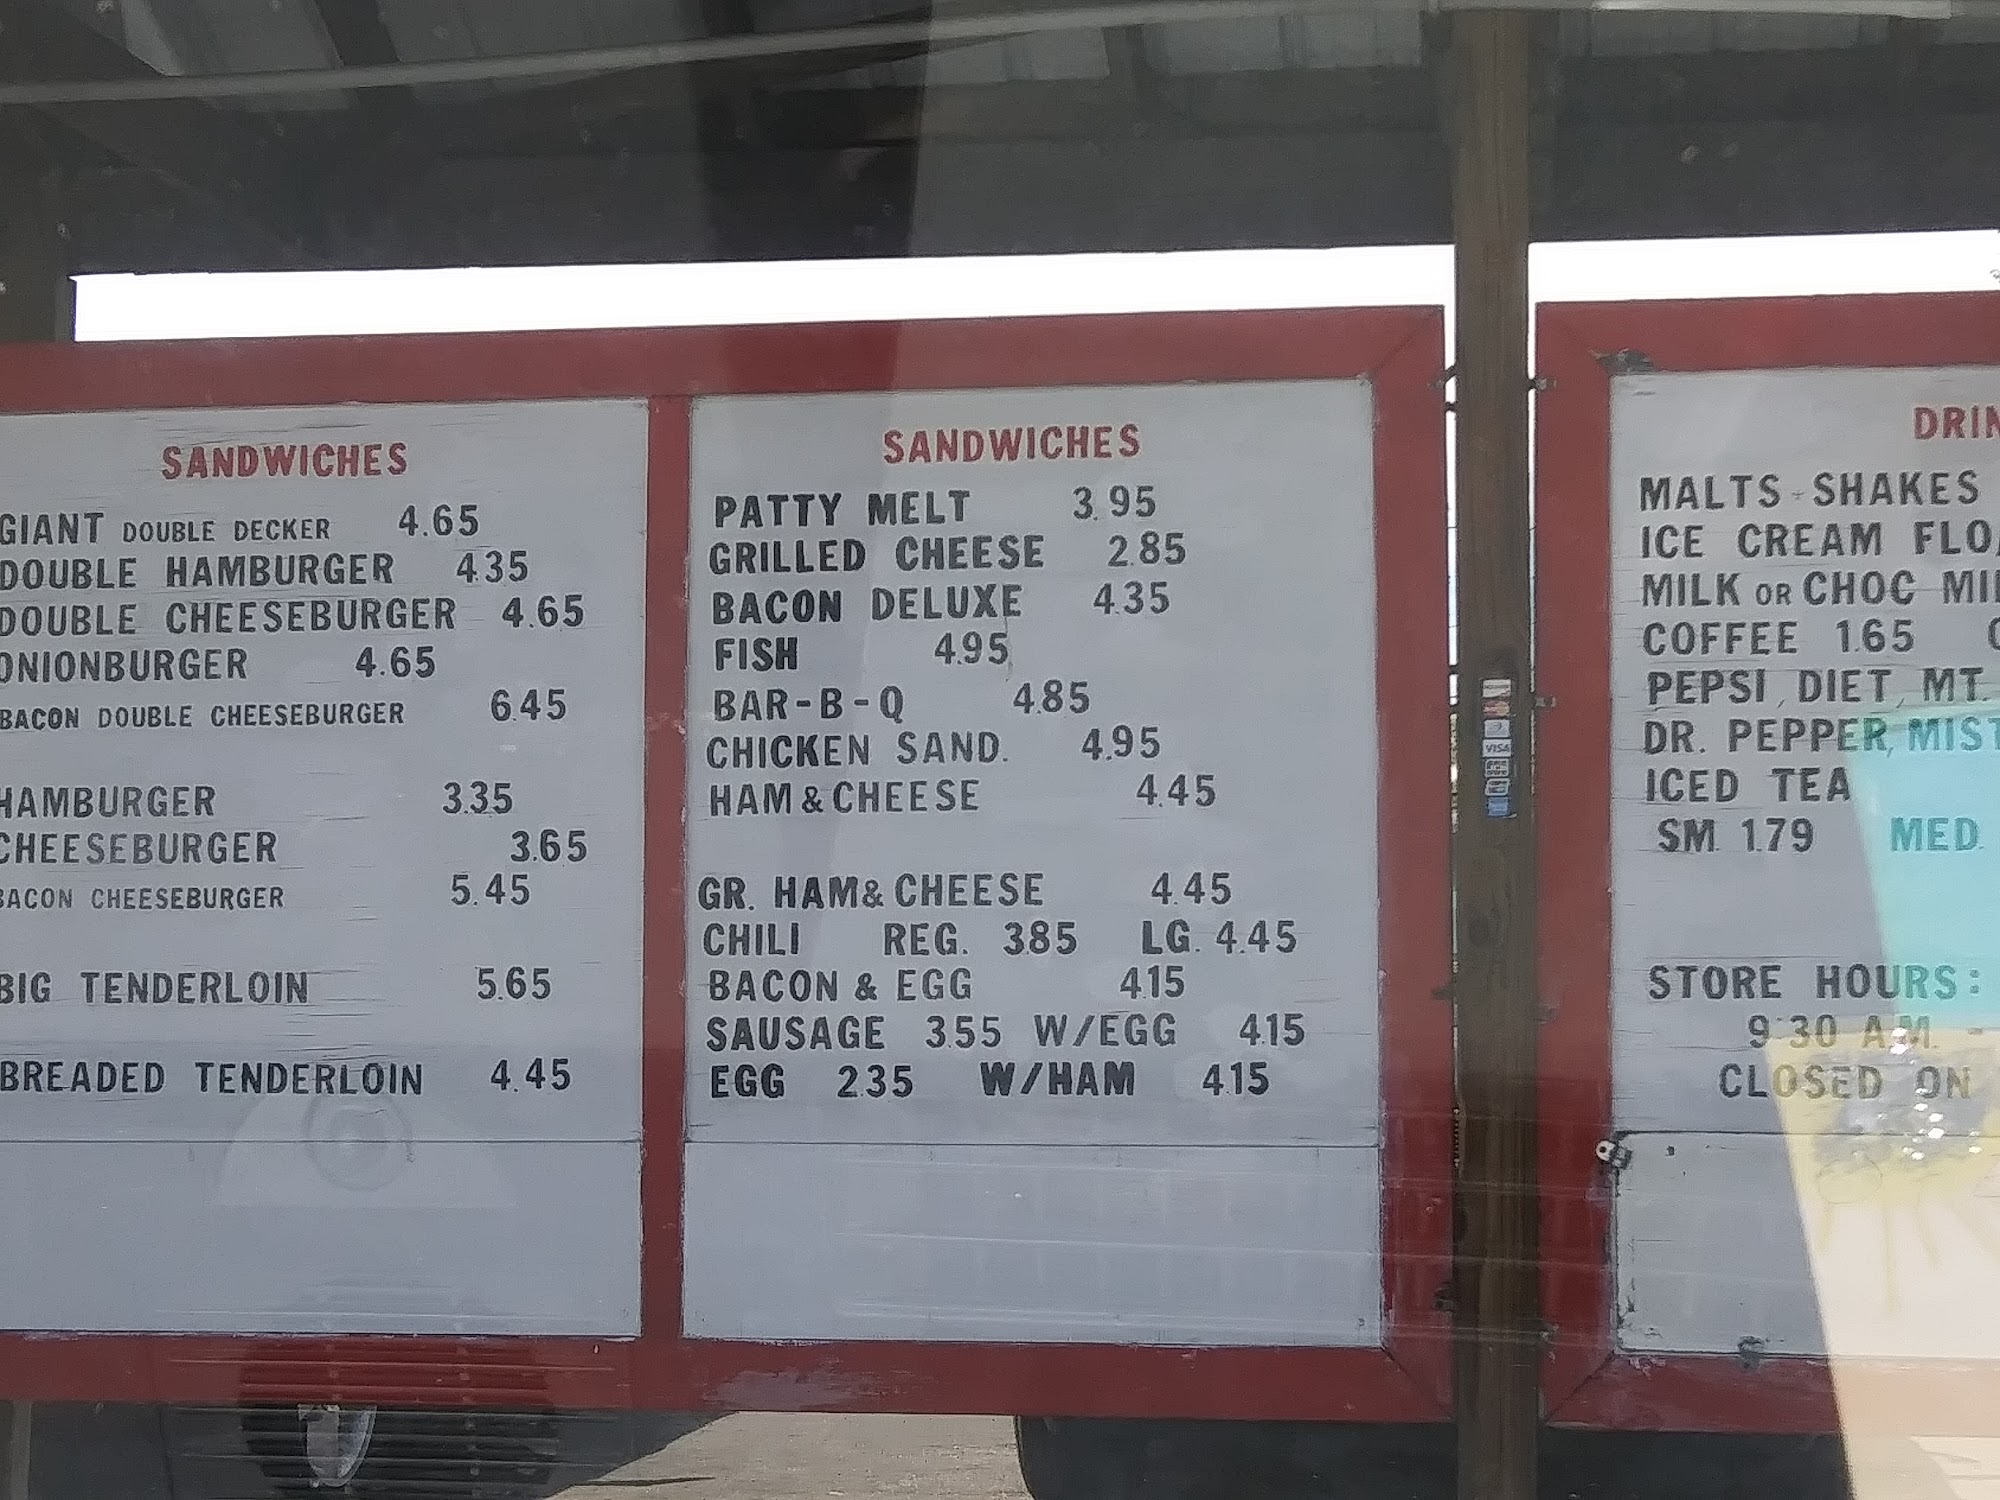 SANDWICHES
GIANT DOUBLE DECKER 4.65
DOUBLE HAMBURGER 4.35
DOUBLE CHEESEBURGER 4.65
ONIONBURGER 4.65
BACON DOUBLE CHEESEBURGER 6.45
HAMBURGER 3.35
CHEESEBURGER 3.65
BACON CHEESEBURGER 5.45
BIG TENDERLOIN 5.65
BREADED TENDERLOIN 4.45
SANDWICHES
PATTY MELT 3.95
GRILLED CHEESE 2.85
BACON DELUXE 4.35
FISH 4.95
BAR-B-Q 4.85
CHICKEN SAND. 4.95
HAM & CHEESE 4.45
GR. HAM & CHEESE 4.45
CHILI REG. 3.85 LG. 4.45
BACON & EGG 4.15
SAUSAGE 3.55 W/EGG 4.15
EGG 2.35 W/HAM 4.15
VISA
DRIN
MALTS - SHAKES
ICE CREAM FLO
MILK OR CHOC MI
COFFEE 1.65
PEPSI, DIET, MT.
DR. PEPPER, MIST
ICED TEA
SM. 1.79 MED.
STORE HOURS:
9:30 A.M. -
CLOSED ON